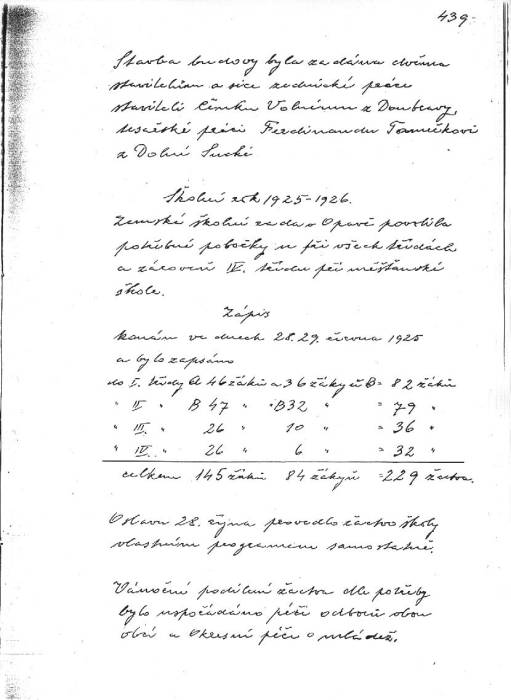 439.
Stavba budovy byla zadána dvěma
stavitelům a sice zednické práce
staviteli Čeňku Volnému z Doubravy,
tesařské práci Ferdinandu Tomečkovi
z Dolní Suché
Školní rok 1925-1926.
Zemská školní rada v Opavě povolila
potřebné pobočky u při všech třídách
a zároveň IV. třídu při měšťanské
škole.
Zápis
konán ve dnech 28. 29. června 1925
a bylo zapsáno
do I. třídy A 46 žáků a 36 žákyň B = 82 žáků
" II " B 47 " " B 32 " = 79 "
" III. " 26 " 10 " = 36 "
" IV. " 26 " 6 " = 32 "
celkem 145 žáků 84 žákyň = 229 žactva.
Oslavu 28. října provedlo žactvo školy
vlastním programem samostatně.
Vánoční podělení žactva dle potřeby
bylo uspořádáno péčí odborů obou
obcí a Okresní péčí o mládež.